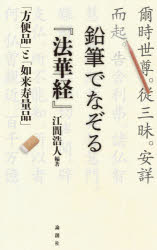 爾時世尊。従三昧。安詳
而起。告
鉛筆でなぞる
『法華経』
江間浩人 編著
「方便品」と「如来寿量品」
論創社